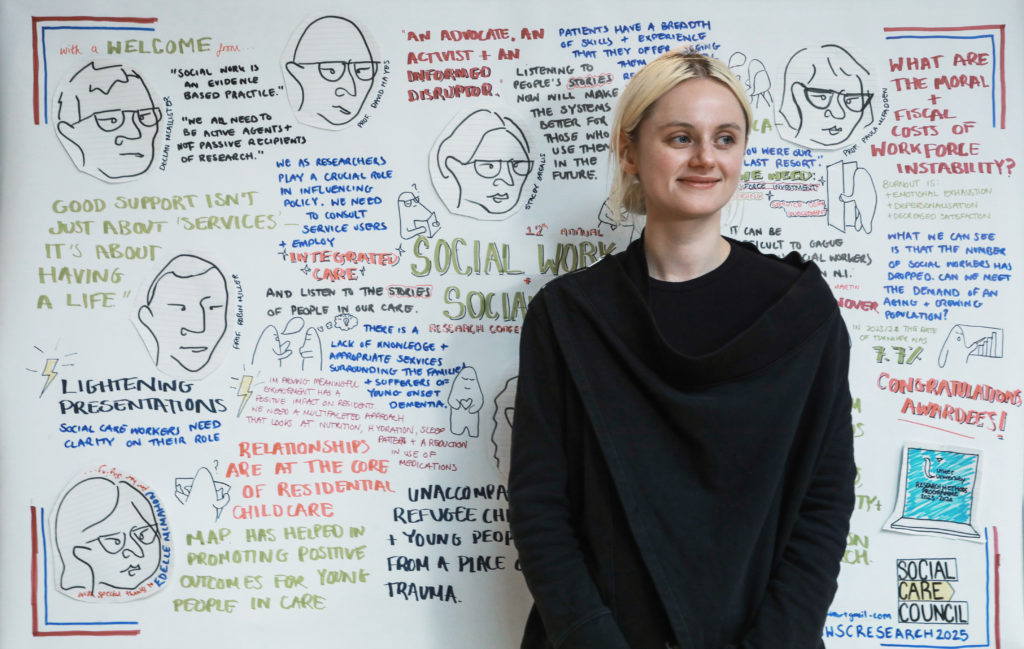 with a WELCOME from...
"SOCIAL WORK IS
AN EVIDENCE
BASED PRACTICE."
DECLAN MCALLISTER
"WE ALL NEED TO
BE ACTIVE AGENTS +
NOT PASSIVE RECIPIENTS
OF RESEARCH."
PROF. DAVID HAYES
"AN ADVOCATE, AN
ACTIVIST + AN
INFORMED
DISRUPTOR."
PATIENTS HAVE A BREADTH
OF SKILLS + EXPERIENCE
THAT THEY OFFER
THEM
LISTENING TO
PEOPLE'S STORIES
NOW WILL MAKE
THE SYSTEMS
BETTER FOR
THOSE WHO
USE THEM
IN THE
FUTURE.
WE AS RESEARCHERS
PLAY A CRUCIAL ROLE
IN INFLUENCING
POLICY. WE NEED
TO CONSULT
SERVICE USERS
+ EMPLOY
INTEGRATED
CARE
AND LISTEN TO THE STORIES
OF PEOPLE IN OUR CARE.
GOOD SUPPORT ISN'T
JUST ABOUT 'SERVICES' –
IT'S ABOUT
HAVING
A LIFE"
PROF. ROBIN MILLER
12th ANNUAL
SOCIAL WORK
+
SOCIAL
RESEARCH
WERE OUR
LAST RESORT."
WE NEED:
INVESTMENT
IT CAN BE
TO GAUGE
SOCIAL WORKERS
IN N.I.
MARTIN
WHAT ARE
THE MORAL
+
FISCAL
COSTS OF
WORKFORCE
INSTABILITY?
BURNOUT IS:
+ EMOTIONAL EXHAUSTION
+ DEPERSONALISATION
+ DECREASED SATISFACTION
WHAT WE CAN SEE
IS THAT THE NUMBER
OF SOCIAL WORKERS HAS
DROPPED. CAN WE MEET
THE DEMAND OF AN
AGING + GROWING
POPULATION?
THE RATE
OF TURNOVER WAS
7.7%
CONGRATULATIONS,
AWARDEES!
LIGHTENING
PRESENTATIONS
SOCIAL CARE WORKERS NEED
CLARITY ON THEIR ROLE
THERE IS A
LACK OF KNOWLEDGE +
APPROPRIATE SERVICES
SURROUNDING THE FAMILIES
+ SUFFERERS OF
YOUNG ONSET
DEMENTIA.
IMPROVING MEANINGFUL
ENGAGEMENT HAS A
POSITIVE IMPACT ON RESIDENT
WE NEED A MULTIFACETED APPROACH
THAT LOOKS AT NUTRITION, HYDRATION, SLEEP
PATTERN + A REDUCTION
IN USE OF
MEDICATIONS
RELATIONSHIPS
ARE AT THE CORE
OF RESIDENTIAL
CHILDCARE
MAP HAS HELPED IN
PROMOTING POSITIVE
OUTCOMES FOR YOUNG
PEOPLE IN CARE
UNACCOMPA
REFUGEE CHI
+ YOUNG PEOP
FROM A PLACE
TRAUMA.
with special thanks to
Ulster
University
RESEARCH METHODS
PROGRAMME
SOCIAL
CARE
COUNCIL
SCRESEARCH2025